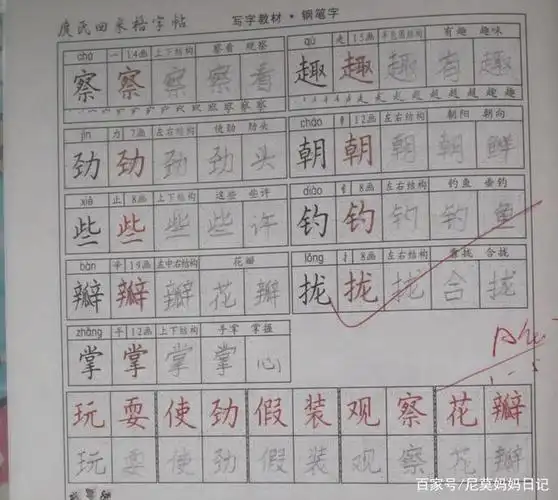 庹氏回米格字帖 写字教材·钢笔字
chá 14画 上下结构 察看 观察
qù 走 15画 半包围结构 有趣 趣味
察 察 察 察 看
趣 趣 趣 有 趣
jìn 力 7画 左右结构 使劲 劲头
cháo 12画 左右结构 朝阳 朝向
劲 劲 劲 劲 头
朝 朝 朝 朝 鲜
xiē 止 8画 上下结构 这些 些许
diào 8画 左右结构 钓鱼 垂钓
些 些 些 些 许
钓 钓 钓 钓 鱼
bàn 辛 19画 左中右结构 花瓣
lǒng 扌 8画 左右结构 靠拢 合拢
瓣 瓣 瓣 花 瓣
拢 拢 拢 合 拢
zhǎng 手 12画 上下结构 手掌 掌握
掌 掌 掌 掌 心
玩 耍 使 劲 假 装 观 察 花 瓣
玩 耍 使 劲 假 装 观 察 花 瓣
百家号/尼莫妈妈日记